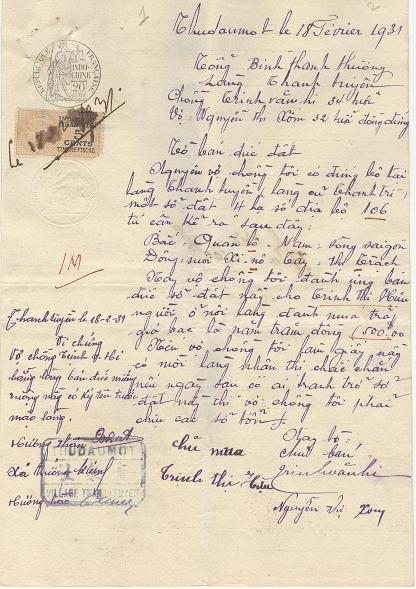 Thudaumot le 18 Février 1931
Tổng Bình thanh thượng
Làng Thanh tuyền
Chồng Trịnh văn hi 34 tuổi
Vợ Nguyễn thị Xôm 32 tuổi đồng đứng
Tờ bán dứt đất
Nguyên vợ chồng tôi có đứng bộ tại
làng thanh tuyền (làng cũ thanh trì)
một sở đất 4 số địa bộ 106
tứ cận kể ra sau đây:
Bắc: Quan lộ, Nam: sông saigon
Đông: suối Tây:
Nay vợ chồng tôi đành ưng bán
dứt sở đất này cho Trịnh thị
người ở nơi làng đành mua trả
giá bạc là năm trăm đồng (500$00
Nên vợ chồng tôi làm giấy này
có mời làng nhận thị chắc chắn
nếu ngày sau có ai tranh trở sở
đất này thì vợ chồng tôi phải
chịu các sở tổn
RÉPUBLIQUE FRANÇAISE
INDO-CHINE
20
5
CENTS
TIMBRE FISCAL
1M
Thanh tuyền le 18-2-31
Vi chứng
Vợ chồng Trịnh v. Hi
bằng lòng bán dứt miếng
ruộng này có ký tên trước
mặt làng
Hương thân
Xã trưởng
Hương hào
THUDAUMOT
VILLAGE THANH TUYEN
chủ mua
Trịnh thị
Nay tờ
Chủ bán
Trịnh văn hi
Nguyễn thị Xom